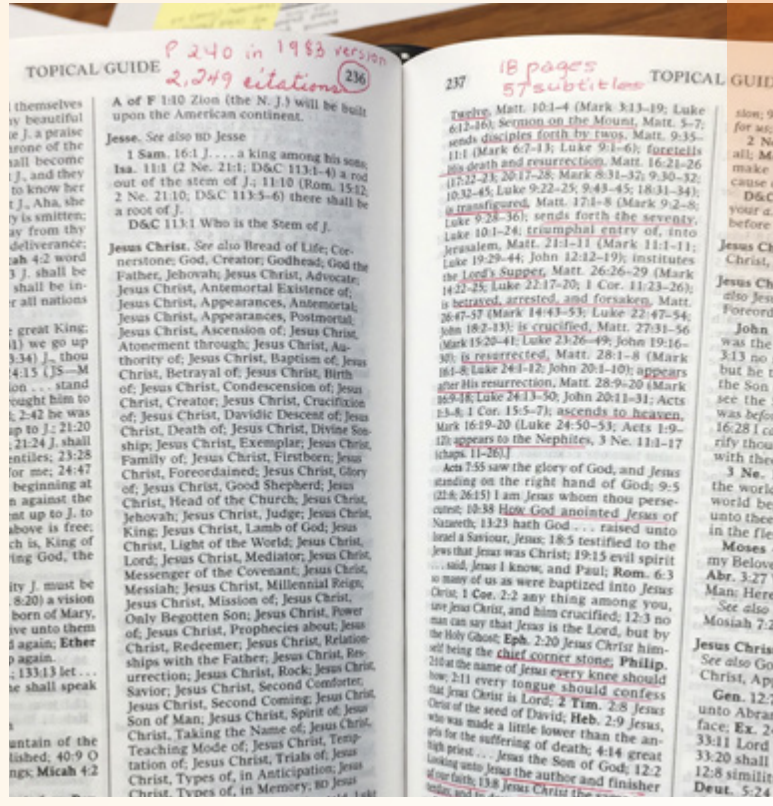 P 240 in 1983 version
2,249 citations
TOPICAL GUIDE
236
themselves
y beautiful
e J. a praise
rone of the
all become
J., and they
to know her
t J., Aha, she
y is smitten;
ay from thy
deliverance;
ah 4:2 word
3 J. shall be
shall be in-
r all nations
great King;
1) we go up
3:34) J., thou
4:15 (JS—M
on . . . stand
ought him to
2:42 he was
p to J.; 21:20
21:24 J. shall
entiles; 23:28
or me; 24:47
beginning at
n against the
nt up to J. to
above is free;
ch is, King of
ing God, the
ity J. must be
8:20) a vision
born of Mary,
ve unto them
d again; Ether
again.
; 133:13 let . . .
e shall speak
untain of the
lished; 40:9 O
ngs; Micah 4:2
A of F 1:10 Zion (the N. J.) will be built
upon the American continent.
Jesse. See also BD Jesse
1 Sam. 16:1 J. . . . a king among his sons;
Isa. 11:1 (2 Ne. 21:1; D&C 113:1–4) a rod
out of the stem of J.; 11:10 (Rom. 15:12;
2 Ne. 21:10; D&C 113:5–6) there shall be
a root of J.
D&C 113:1 Who is the Stem of J.
Jesus Christ. See also Bread of Life; Cor-
nerstone; God, Creator; Godhead; God the
Father, Jehovah; Jesus Christ, Advocate;
Jesus Christ, Antemortal Existence of;
Jesus Christ, Appearances, Antemortal;
Jesus Christ, Appearances, Postmortal;
Jesus Christ, Ascension of; Jesus Christ,
Atonement through; Jesus Christ, Au-
thority of; Jesus Christ, Baptism of; Jesus
Christ, Betrayal of; Jesus Christ, Birth
of; Jesus Christ, Condescension of; Jesus
Christ, Creator; Jesus Christ, Crucifixion
of; Jesus Christ, Davidic Descent of; Jesus
Christ, Death of; Jesus Christ, Divine Son-
ship; Jesus Christ, Exemplar; Jesus Christ,
Family of; Jesus Christ, Firstborn; Jesus
Christ, Foreordained; Jesus Christ, Glory
of; Jesus Christ, Good Shepherd; Jesus
Christ, Head of the Church; Jesus Christ,
Jehovah; Jesus Christ, Judge; Jesus Christ,
King; Jesus Christ, Lamb of God; Jesus
Christ, Light of the World; Jesus Christ,
Lord; Jesus Christ, Mediator; Jesus Christ,
Messenger of the Covenant; Jesus Christ,
Messiah; Jesus Christ, Millennial Reign;
Jesus Christ, Mission of; Jesus Christ,
Only Begotten Son; Jesus Christ, Power
of; Jesus Christ, Prophecies about; Jesus
Christ, Redeemer; Jesus Christ, Relation-
ships with the Father; Jesus Christ, Res-
urrection; Jesus Christ, Rock; Jesus Christ,
Savior; Jesus Christ, Second Comforter;
Jesus Christ, Second Coming; Jesus Christ,
Son of Man; Jesus Christ, Spirit of; Jesus
Christ, Taking the Name of; Jesus Christ,
Teaching Mode of; Jesus Christ, Temp-
tation of; Jesus Christ, Trials of; Jesus
Christ, Types of, in Anticipation; Jesus
Christ, Types of, in Memory; BD Jesus
237
18 pages
57 subtitles
TOPICAL GUID
Twelve, Matt. 10:1–4 (Mark 3:13–19; Luke
6:12–16); Sermon on the Mount, Matt. 5–7;
sends disciples forth by twos, Matt. 9:35–
11:1 (Mark 6:7–13; Luke 9:1–6); foretells
His death and resurrection, Matt. 16:21–26
(17:22–23; 20:17–28; Mark 8:31–37; 9:30–32;
10:32–45; Luke 9:22–25; 9:43–45; 18:31–34);
is transfigured, Matt. 17:1–8 (Mark 9:2–8;
Luke 9:28–36); sends forth the seventy,
Luke 10:1–24; triumphal entry of, into
Jerusalem, Matt. 21:1–11 (Mark 11:1–11;
Luke 19:29–44; John 12:12–19); institutes
the Lord's Supper, Matt. 26:26–29 (Mark
14:22–25; Luke 22:17–20; 1 Cor. 11:23–26);
is betrayed, arrested, and forsaken, Matt.
26:47–57 (Mark 14:43–53; Luke 22:47–54;
John 18:2–13); is crucified, Matt. 27:31–56
(Mark 15:20–41; Luke 23:26–49; John 19:16–
30); is resurrected, Matt. 28:1–8 (Mark
16:1–8; Luke 24:1–12; John 20:1–10); appears
after His resurrection, Matt. 28:9–20 (Mark
16:9–18; Luke 24:13–50; John 20:11–31; Acts
1:3–8; 1 Cor. 15:5–7); ascends to heaven,
Mark 16:19–20 (Luke 24:50–53; Acts 1:9–
12); appears to the Nephites, 3 Ne. 11:1–17
(chaps. 11–26).]
Acts 7:55 saw the glory of God, and Jesus
standing on the right hand of God; 9:5
(22:8; 26:15) I am Jesus whom thou perse-
cutest; 10:38 How God anointed Jesus of
Nazareth; 13:23 hath God . . . raised unto
Israel a Saviour, Jesus; 18:5 testified to the
Jews that Jesus was Christ; 19:15 evil spirit
. . . said, Jesus I know, and Paul; Rom. 6:3
so many of us as were baptized into Jesus
Christ; 1 Cor. 2:2 any thing among you,
save Jesus Christ, and him crucified; 12:3 no
man can say that Jesus is the Lord, but by
the Holy Ghost; Eph. 2:20 Jesus Christ him-
self being the chief corner stone; Philip.
2:10 at the name of Jesus every knee should
bow; 2:11 every tongue should confess
that Jesus Christ is Lord; 2 Tim. 2:8 Jesus
Christ of the seed of David; Heb. 2:9 Jesus,
who was made a little lower than the an-
gels for the suffering of death; 4:14 great
high priest . . . Jesus the Son of God; 12:2
Looking unto Jesus the author and finisher
of our faith; 13:8 Jesus Christ the
sion; 9
for us;
2 N
all; M
make
cause
D&C
your a
before
Jesus Ch
Jesus Ch
also Jes
Foreord
John
was the
3:13 no
but he t
the Son
see the
was befo
16:28 I ca
rify thou
with thee
3 Ne.
the worl
world be
unto thee
in the fle
Moses
my Belov
Abr. 3:27
Man: Here
See also
Mosiah 7:2
Jesus Chris
See also Go
Christ, Ap
Gen. 12:
unto Abra
face; Ex. 2
33:11 Lord
33:20 shall
12:8 simili
Deut. 5:24